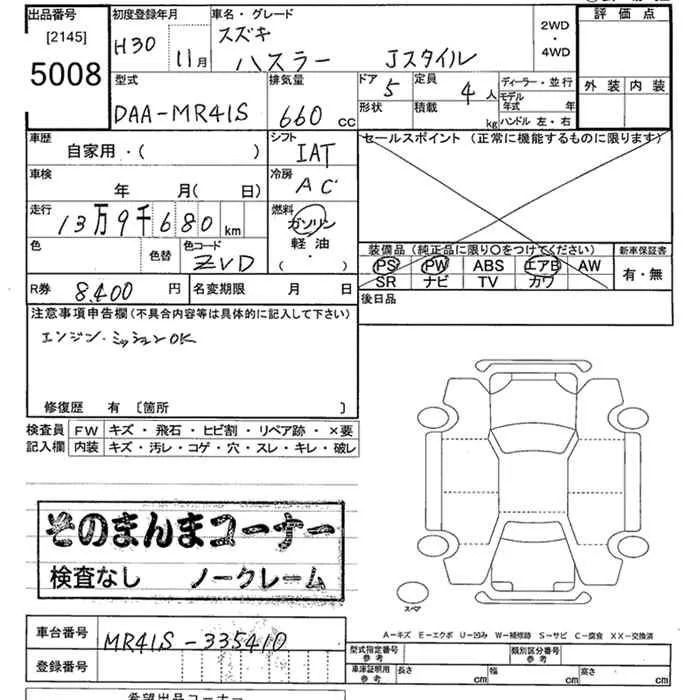 出品番号 初度登録年月 車名・グレード 評価点
[2145] H30 11月 スズキ 2WD・4WD
5008 ハスラー Jスタイル 外装 内装
型式 排気量 ドア 5 定員 4人 ディーラー・並行
DAA-MR41S 660cc 形状 積載 kg モデル年式 年
ハンドル 左・右
車歴 シフト セールスポイント (正常に機能するものに限ります)
自家用・( ) IAT
車検 年 月( 日) 冷房 AC
走行 13万9千680km 燃料 ガソリン
軽油
・
( )
色 色替 色コード ZVD
装備品 (純正品に限り○をつけてください) 新車保証書
PS PW ABS エアB AW 有・無
SR ナビ TV カワ
R券 8,400円 名変期限 月 日 後日品
注意事項申告欄(不具合内容等は具体的に記入して下さい)
エンジン・ミッションOK
修復歴 有 〔箇所 〕
検査員 FW キズ・飛石・ヒビ割・リペア跡・×要
記入欄 内装 キズ・汚レ・コゲ・穴・スレ・キレ・破レ
そのまんまコーナー
検査なし ノークレーム
スペア
A-キズ E-エクボ U-凹み W-補修跡 S-サビ C-腐食 XX-交換済
車台番号 MR41S-335410
登録番号
型式指定番号 参考 類別区分番号 参考
車庫証明用 参考 長さ cm 幅 cm 高さ cm
希望出品コーナー